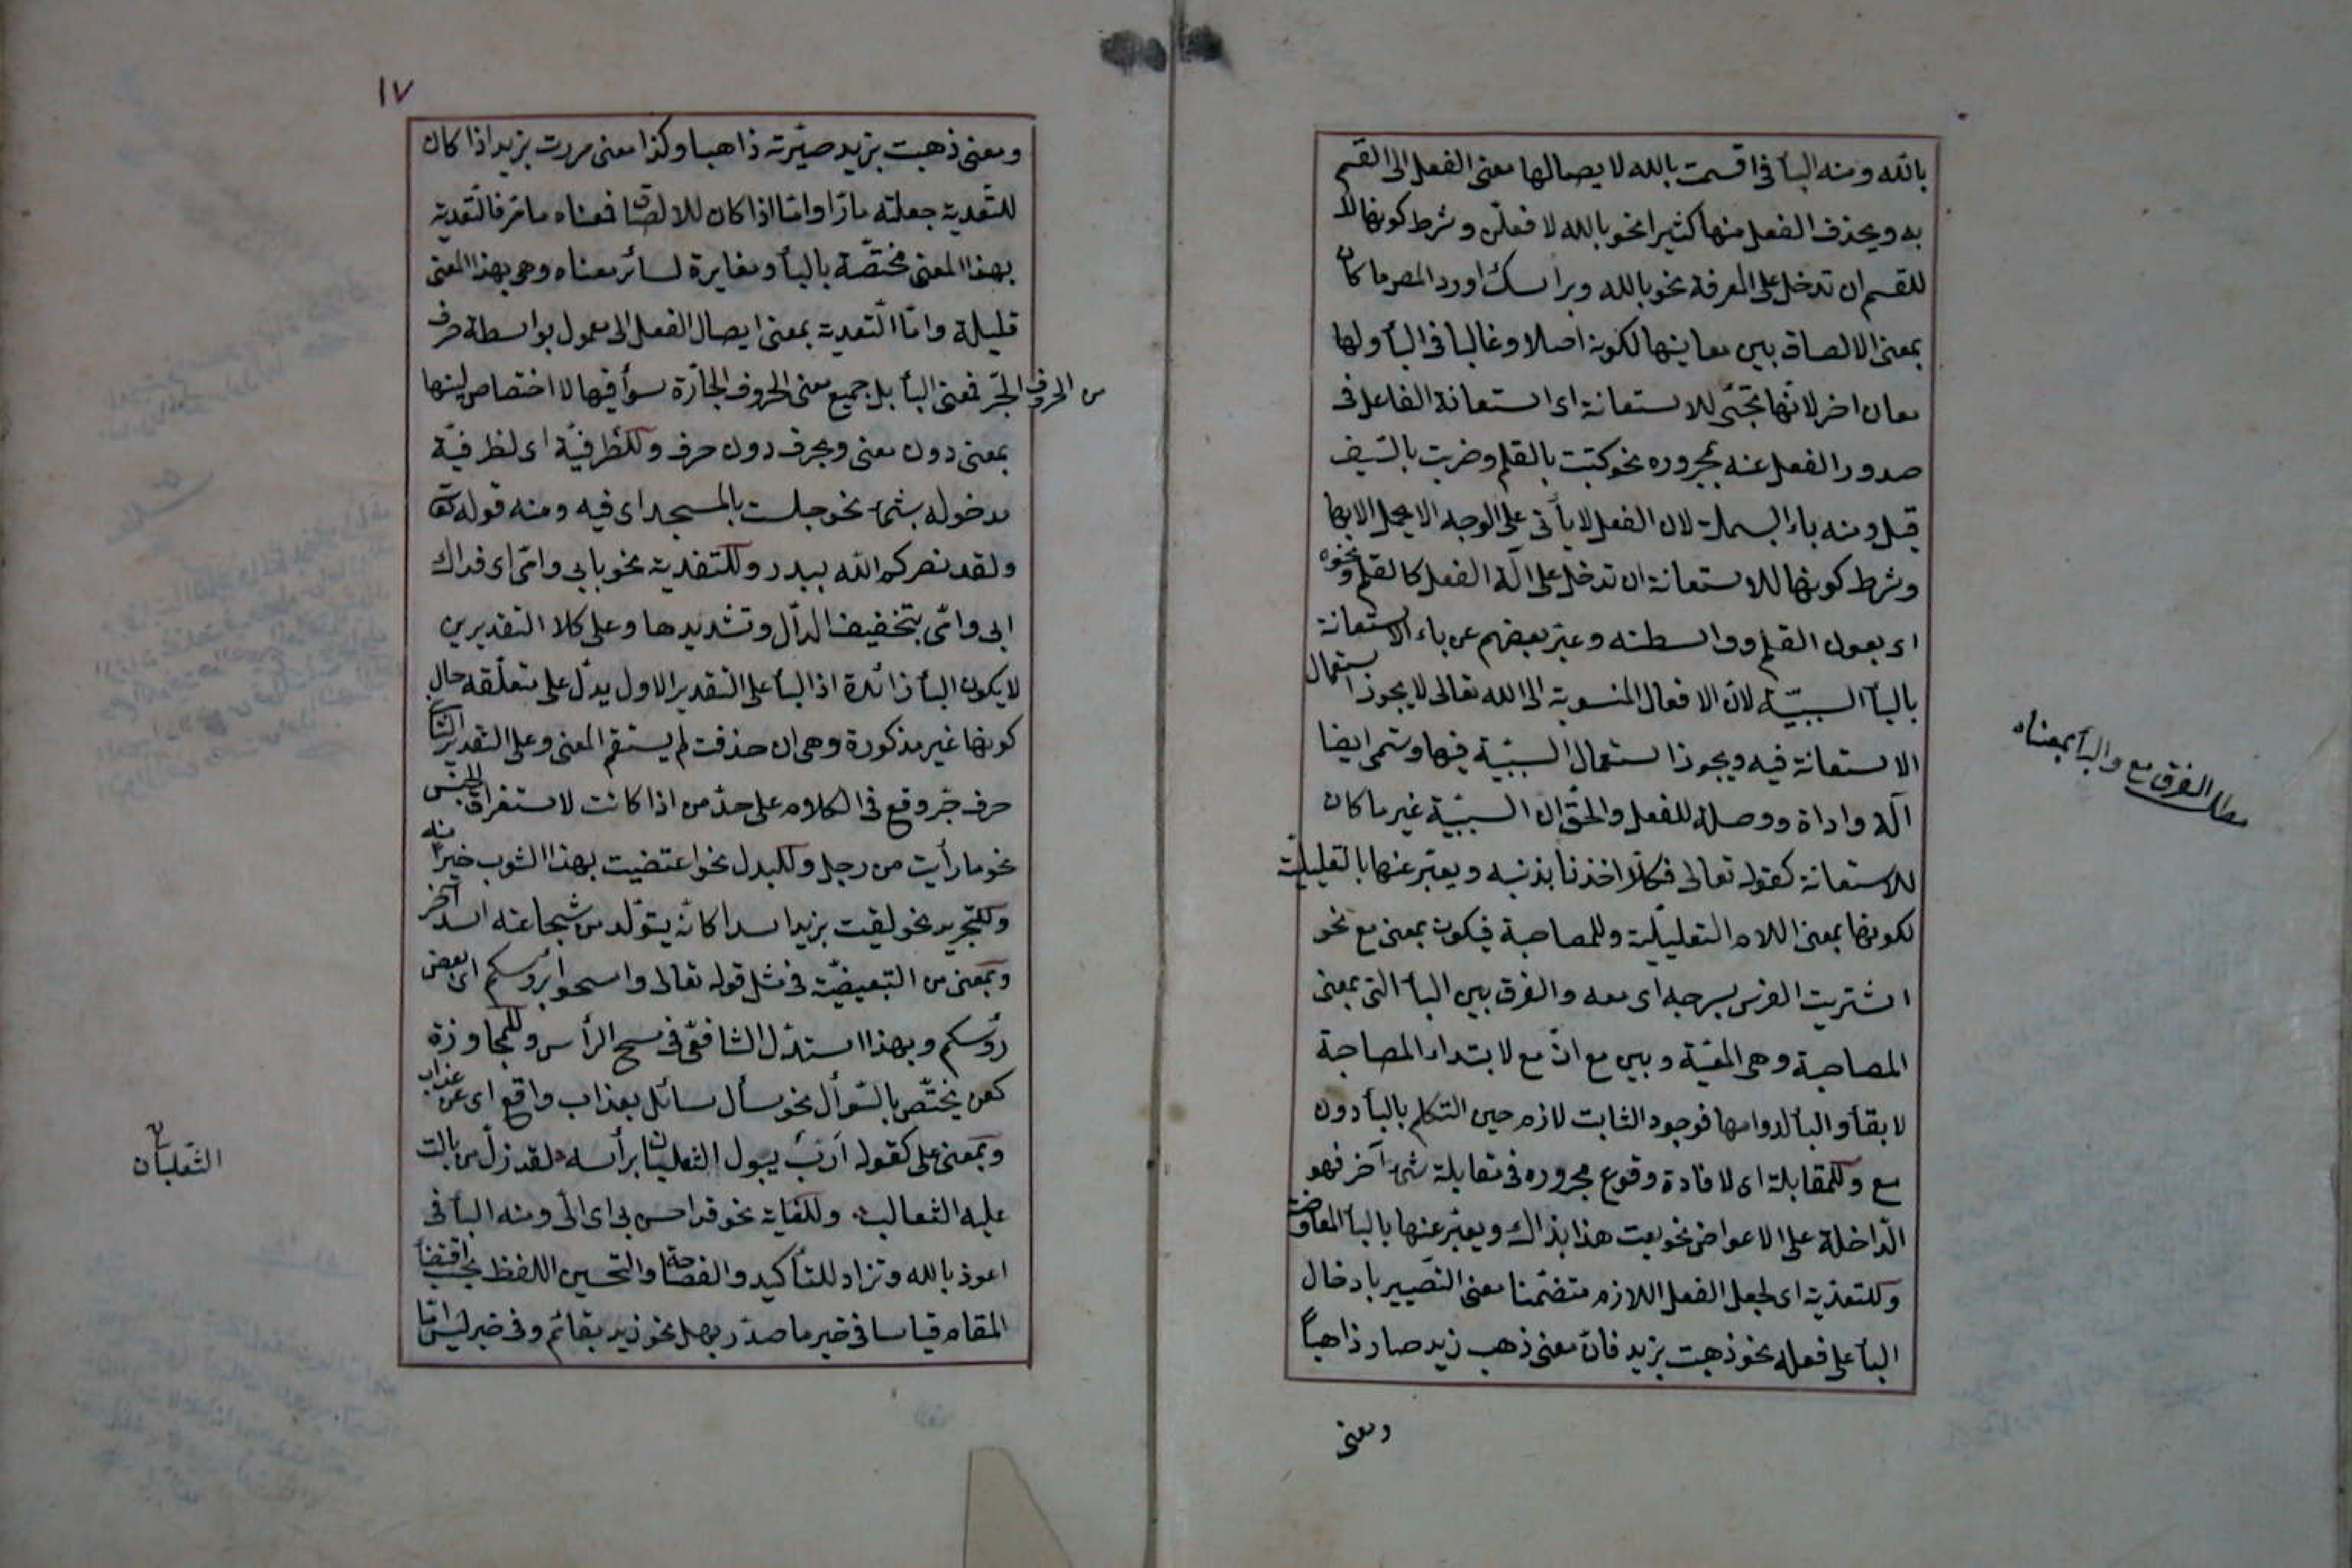 بالله ومنه البأ فى اقسمت بالله لايصالها معنى الفعل الى القسم
به ويحذف الفعل منها كثيرا نحو بالله لافعلن وشرط كونها لا
للقسم ان تدخل على المعرفة نحو بالله وبراسك اورد المص ما كان
بمعنى الالصاق بين معاينها لكونه اصلا وغالبا فى البأ ولها
معان اخر لانها تجئ للاستعانة اى استعانة الفاعل فى
صدور الفعل عنه بمجروره نحو كتبت بالقلم وضربت بالسيف
قيل ومنه باء البسملة لان الفعل لا يأتى على الوجه الاكمل الا بها
وشرط كونها للاستعانة ان تدخل على آلة الفعل كالقلم ونحوه
اى بعون القلم وواسطته وعبر بعضهم عن باء الاستعانة
بالبأ السببيّة لان الافعال المنسوبة الى الله تعالى لا يجوز استعمال
الاستعانة فيه ويجوز استعمال السببيّة فيها وتسمى ايضا
آلة واداة ووصلة للفعل والحق ان السببيّة غير ما كان
للاستعانة كقوله تعالى فكلا اخذنا بذنبه ويعبّر عنها بالتعليليّة
لكونها بمعنى اللام التعليليّة وللمصاحبة فيكون بمعنى مع نحو
اشتريت الفرس بسرجه اى معه والفرق بين البأ التى بمعنى
المصاحبة وهى المعيّة وبين مع انّ مع لابتداء المصاحبة
لا بقأ والبأ لدوامها فوجود الثابت لازم حين التكلم بالبأ دون
مع وللمقابلة اى لافادة وقوع مجروره فى مقابلة شئ آخر فهو
الدّاخلة على الاعواض نحو بعت هذا بذاك ويعبّر عنها بالبأ المعاوضة
وللتعدية اى لجعل الفعل اللازم متضمّنا معنى التصيير بادخال
البأ على فعله نحو ذهبت بزيد فان معنى ذهب زيد صار ذاهباً
ومعنى
مطلب الفرق مع والبأ بمعناه
١٧
ومعنى ذهبت بزيد صيّرته ذاهبا وكذا معنى مررت بزيد اذا كان
للتّعدية جعلته مارّا وامّا اذا كان للالصاق فمعناه ما مرّ فالتّعدية
بهذا المعنى مختصّة بالبأ ومغايرة لسائر معناه وهى بهذا المعنى
قليلة وامّا التّعدية بمعنى ايصال الفعل الى معمول بواسطة حرف
من الحروف الجرّ فمعنى البأ بل جميع معنى الحروف الجارّة سوأ فيها لا اختصاص لها
بمعنى دون معنى وبحرف دون حرف وللظرفيّة اى لظرفيّة
مدخوله بشئ نحو جلست بالمسجد اى فيه ومنه قوله تعا
ولقد نصركم الله ببدر وللتفدية نحو بابى وامّى اى فداك
ابى وامّى بتخفيف الدّال وتشديدها وعلى كلا التقديرين
لا يكون البأ زائدة اذ البأ على التقدير الاول يدلّ على متعلّقه حال
كونها غير مذكورة وهى ان حذفت لم يستقم المعنى وعلى التقدير الثانى
حرف جرّ وقع فى الكلام على حدّ من اذا كانت لاستغراق الجنس
نحو ما رأيت من رجل وللبدل نحو اعتضيت بهذا الثوب خيرا منه
وللتجريد نحو لقيت بزيد اسدا كانّه يتولّد من شجاعته اسد آخر
وبمعنى من التبعيضيّة فى مثل قوله تعالى وامسحوا برؤسكم اى بعض
رؤسكم وبهذا استدل الشافعى فى مسح الرأس وللمجاوزة
كعن يختصّ بالسّوأل نحو سأل سائل بعذاب واقع اى عن عذاب
وبمعنى على كقوله أربّ يبول الثعلبان برأسه لقد ذلّ من بالت
عليه الثعالب وللغاية نحو قد احسن بى اى الىّ ومنه البأ فى
اعوذ بالله وتزاد للتأكيد والفصاحة والتحسين اللفظ بحسب اقتضأ
المقام قياسا فى خبر ما صدّر بهل نحو زيد بقائم وفى خبر ليس امّا
الثعلبان